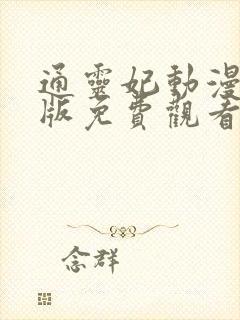 通靈妃動漫
版免費觀看
念群